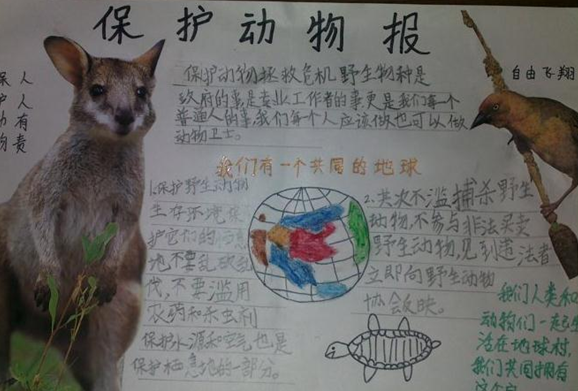 保护动物报
保护动物人人有责
自由飞翔
保护动物拯救危机野生物种是
政府的事是专业工作者的事更是我们每一个
普通人的事我们每个人应该做也可以做
动物卫士。
我们有一个共同的地球
1.保护野生动物
生存环境保
护它们的
地不要乱砍乱
伐,不要滥用
农药和杀虫剂
保护水源和空气也是
保护栖息地的一部分。
2.其次不滥捕杀野生
动物,不参与非法买卖
野生动物,见到违法者
立即向野生动物
协会反映。
我们人类和
动物们一起生
活在地球村,
我们共同拥有